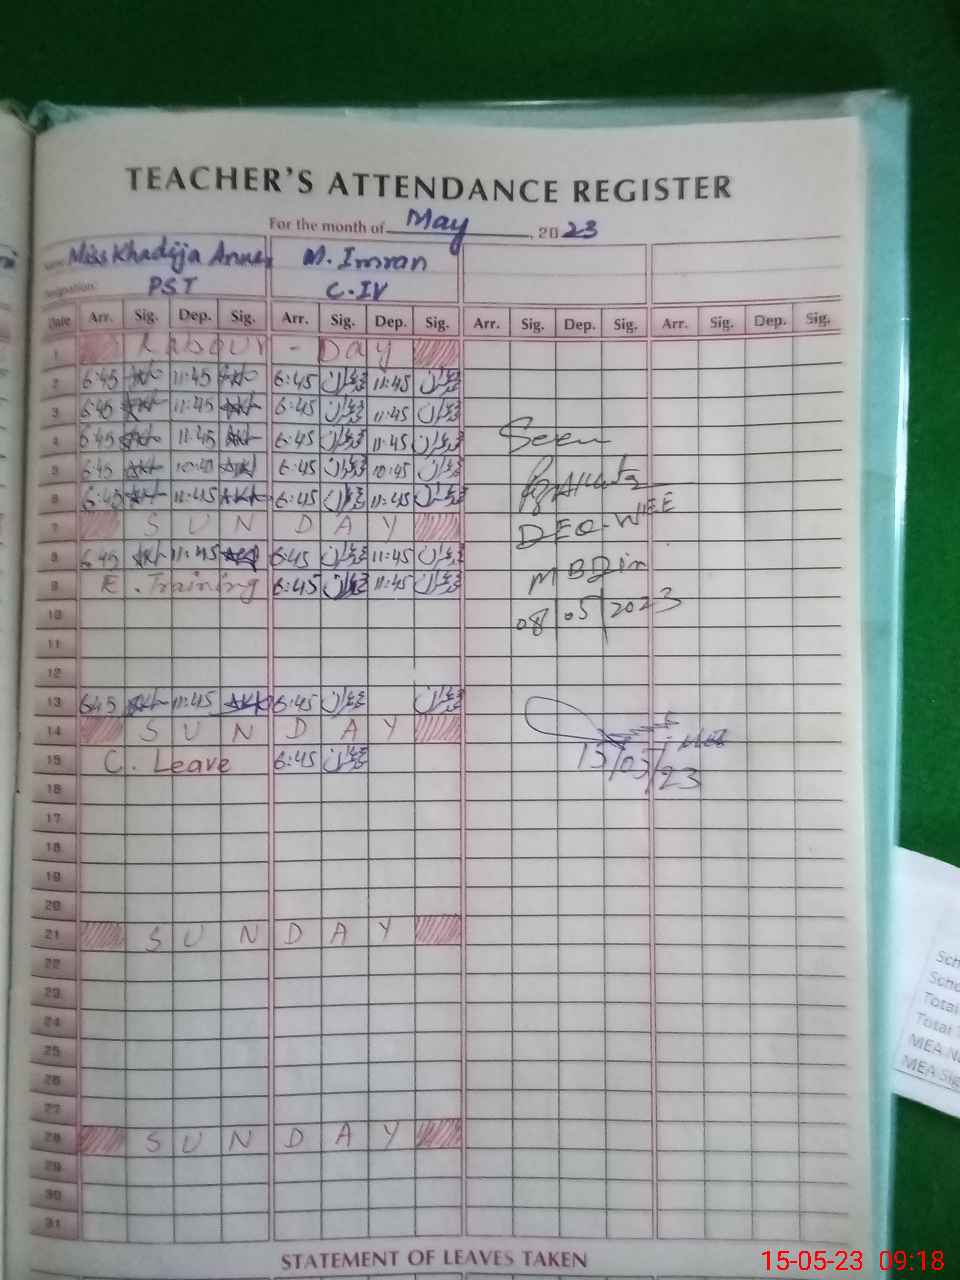 TEACHER'S ATTENDANCE REGISTER
For the month of May, 2023
Name Miss Khadija M. Imran
Designation PST C-IV
Date Arr. Sig. Dep. Sig. Arr. Sig. Dep. Sig. Arr. Sig. Dep. Sig. Arr. Sig. Dep. Sig.
1 Labour - Day
2 6:45 11:45 6:45 عمران 11:45 عمران
3 6:45 11:45 6:45 عمران 11:45 عمران
4 6:45 11:45 6:45 عمران 11:45 عمران
Seen
5 6:45 6:45 عمران 10:45 عمران
6 6:45 11:45 6:45 عمران 11:45 عمران
7 SUN DAY
DEO-WEE
8 6:45 11:45 6:45 عمران 11:45 عمران
MBDin
9 E. Training 6:45 عمران 11:45 عمران
08/05/2023
10
11
12
13 6:45 11:45 6:45 عمران عمران
14 SUN DAY
15 C. Leave 6:45 عمران
15/05/23
16
17
18
19
20
21 SUN DAY
22
23
24
25
26
27
28 SUN DAY
29
30
31
STATEMENT OF LEAVES TAKEN
Sch
Scho
Total
Total
MEA
MEA Sig
15-05-23 09:18